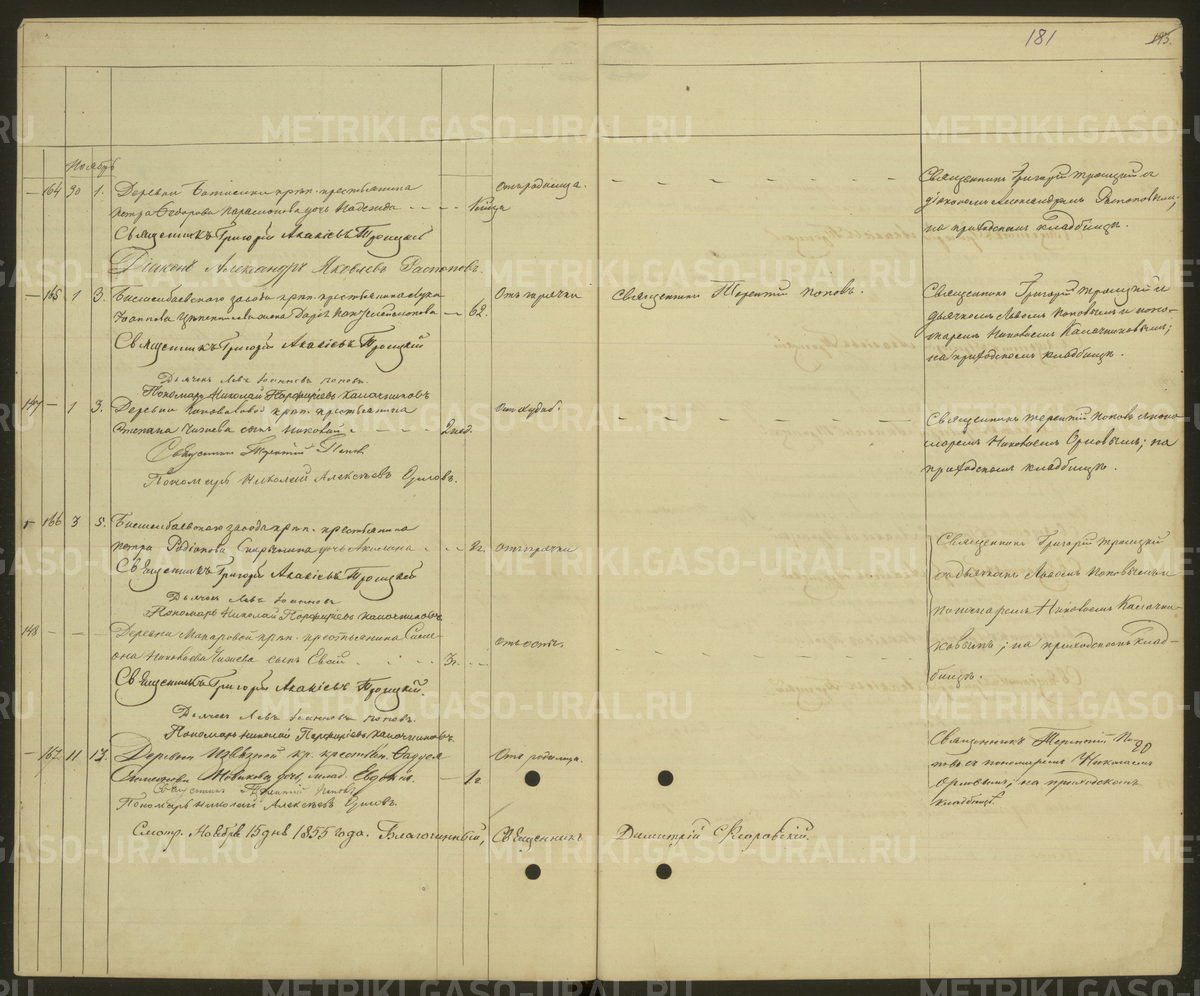 181
Ноябрь
164 30 1. Деревни крѣп. крестьянина
Петра Ѳедорова Парамонова дочь Надежда
Отъ родимца.
Священникъ Григорій Троицкій съ
діакономъ Александромъ Распоповымъ,
на приходскомъ кладбищѣ.
Священникъ Григорій Акакіевъ Троицкій
Діаконъ Александръ Яковлевъ Распоповъ
165 1 3. Билимбаевскаго завода крѣп. крестьянина Луки
Іоаннова жена Дарья 62.
Отъ горячки
Священникъ Терентій Поповъ.
Священникъ Григорій Троицкій съ
дьячкомъ Львомъ Поповымъ и поно-
маремъ Николаемъ Калачниковымъ;
на приходскомъ кладбищѣ.
Священникъ Григорій Акакіевъ Троицкій
Дьячекъ Левъ Іоанновъ Поповъ.
Пономарь Николай Порфиріевъ Калачниковъ
147 1 3. Деревни Коноваловой крѣп. крестьянина
Степана Чижева сынъ Николай 2 нед.
Священникъ Терентій Поповъ съ поно-
маремъ Николаемъ Орловымъ; на
приходскомъ кладбищѣ.
Священникъ Терентій Поповъ
Пономарь Николай Алексѣевъ Орловъ.
166 3 5. Билимбаевскаго завода крѣп. крестьянина
Петра Родіонова дочь Акилина 2г.
Отъ горячки
Священникъ Григорій Троицкій
съ дьячкомъ Львомъ Поповымъ и
пономаремъ Николаемъ Калачни-
ковымъ; на приходскомъ клад-
бищѣ.
Священникъ Григорій Акакіевъ Троицкій
Дьячекъ Левъ Іоанновъ
Пономарь Николай Порфиріевъ Калачниковъ
148 Деревни Макаровой крѣп. крестьянина Симе-
она Николаева Чижева сынъ 3г.
Отъ оспы.
Священникъ Григорій Акакіевъ Троицкій.
Дьячекъ Левъ Іоанновъ Поповъ.
Пономарь Николай Порфиріевъ Калачниковъ.
167 11 13. Деревни Извѣзной кр. крестьян.
дочь, млад. Евдокія 1г
Отъ родимца.
Священникъ Терентій По-
повъ съ пономаремъ Николаемъ
Орловымъ; на приходскомъ
кладбищѣ.
Священникъ Терентій Поповъ
Пономарь Николай Алексѣевъ Орловъ.
Смотр. Ноября 15 дня 1855 года. Благочинный, Священникъ Димитрій
METRIKI.GASO-URAL.RU